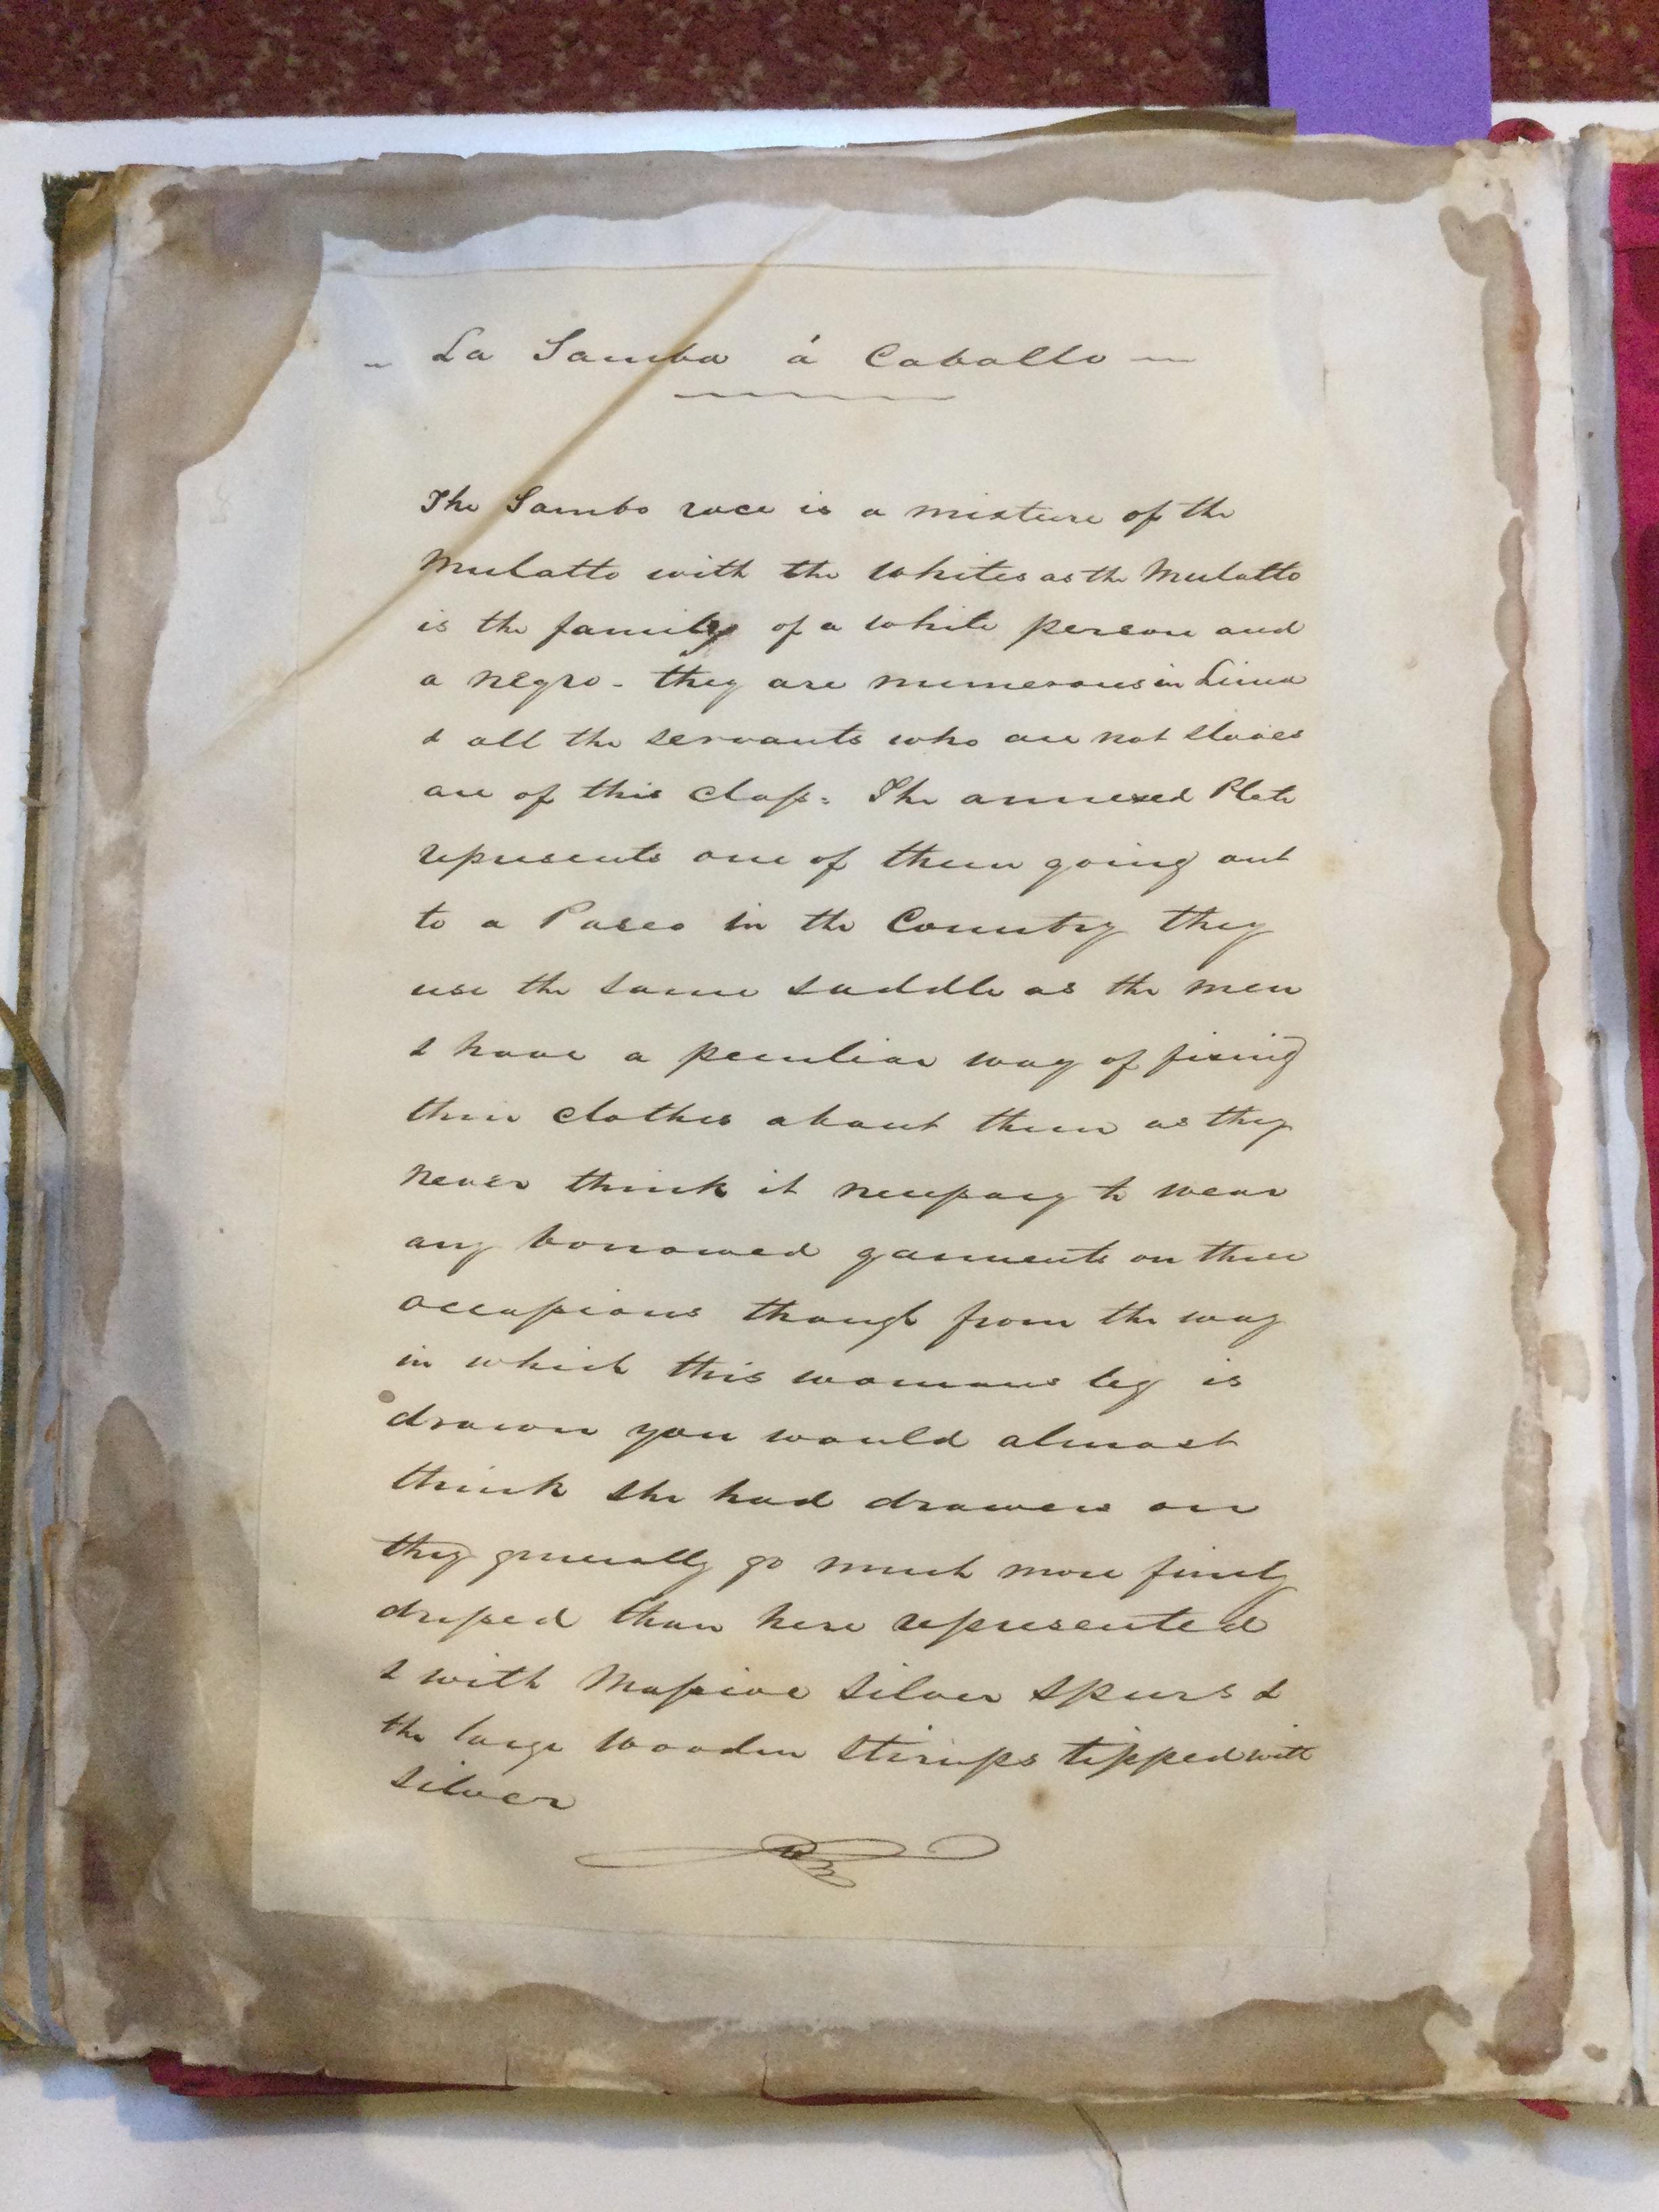 La Samba á Caballo
The Sambo race is a mixture of the
Mulatto with the Whites as the Mulatto
is the family of a white person and
a negro - they are numerous in Lima
& all the servants who are not slaves
are of this class. The annexed Plate
represents one of them going out
to a Paseo in the Country they
use the same saddle as the men
& have a peculiar way of fixing
their clothes about them as they
never think it necessary to wear
any borrowed garments on these
occasions though from the way
in which this womans leg is
drawn you would almost
think she had drawers on
they generally go much more finely
dressed than here represented
& with Massive silver spurs &
the large wooden stirrups tipped with
silver